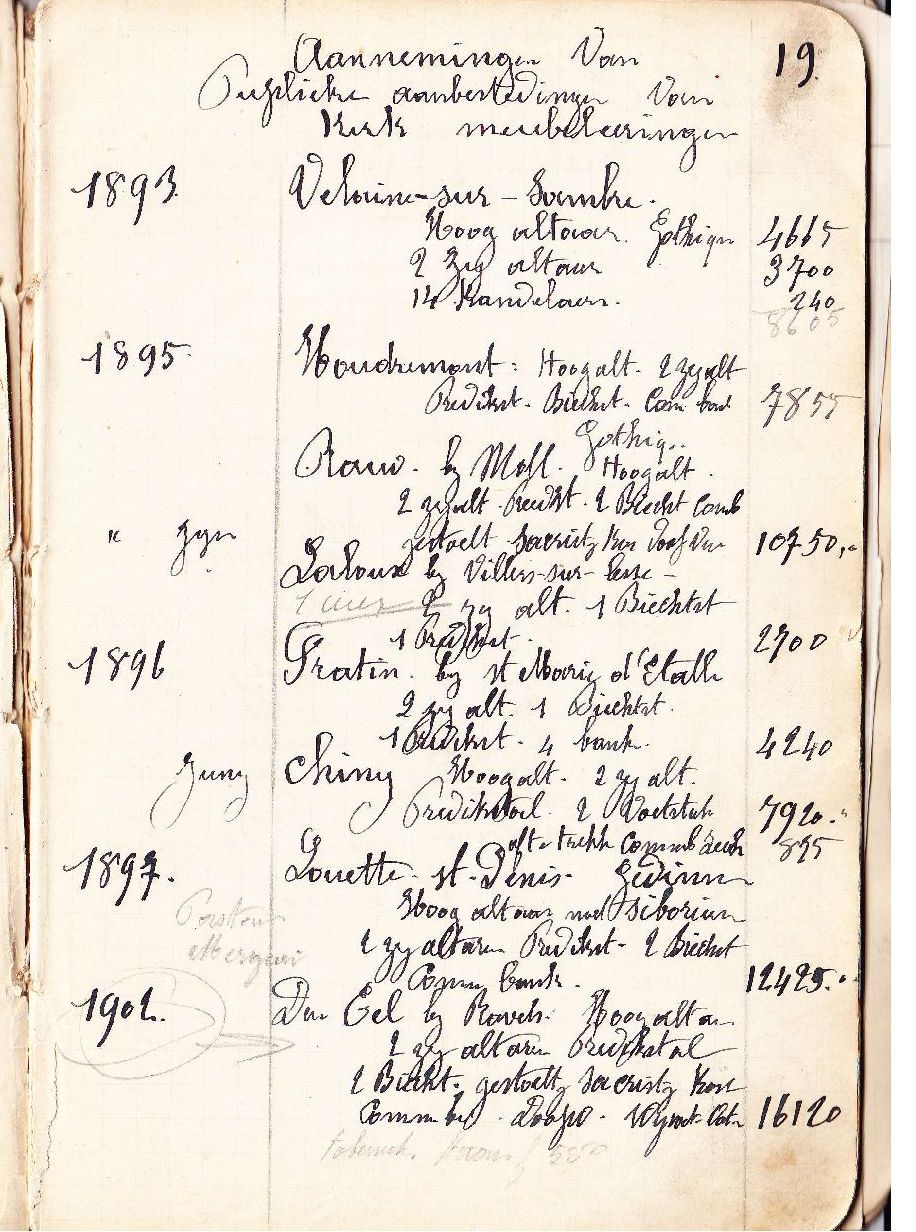 19.
Aannemingen Van
Puplieke aanbestedingen Van
Kerk meubeleeringen
1893. Velaine-sur-Sambre.
Hoog altaar. Gothique 4665
2 Zy altaar 3700
14 Kandelaers. 240
8605
1895. Houdremont: Hoogalt. 2 zyalt
Predikst. Biechst. Com bank 7855
Gothiq..
Rauw. by Moll. Hoogalt.
2 zyalt. Predikst. 2 Biecht Comb
" gestoelt Sacristy 10750,-
Laloux by Villers-sur-Lesse -
2 zy alt. 1 Biechtst
1 Predikst. 2700
1896 Fratin. by st Marie d'Etalle
2 zy alt. 1 Biechtst.
1 Predikst. 4 bank. 4240
Juny Chiny Hoogalt. 2 zy alt.
Predikstoel. 2 Voetstuk 7920.-
895
1897. Louette-st-Denis. Gedinne
Hoog altaar met Siborium
2 zyaltaren Predikst- 2 Biechst
Comm bank. 12425.-
1902. Den Eel by Ravels. Hoog altaar
2 zy altaren Predikstoel
2 Biecht. gestoelt Sacristy Kast
16120
550